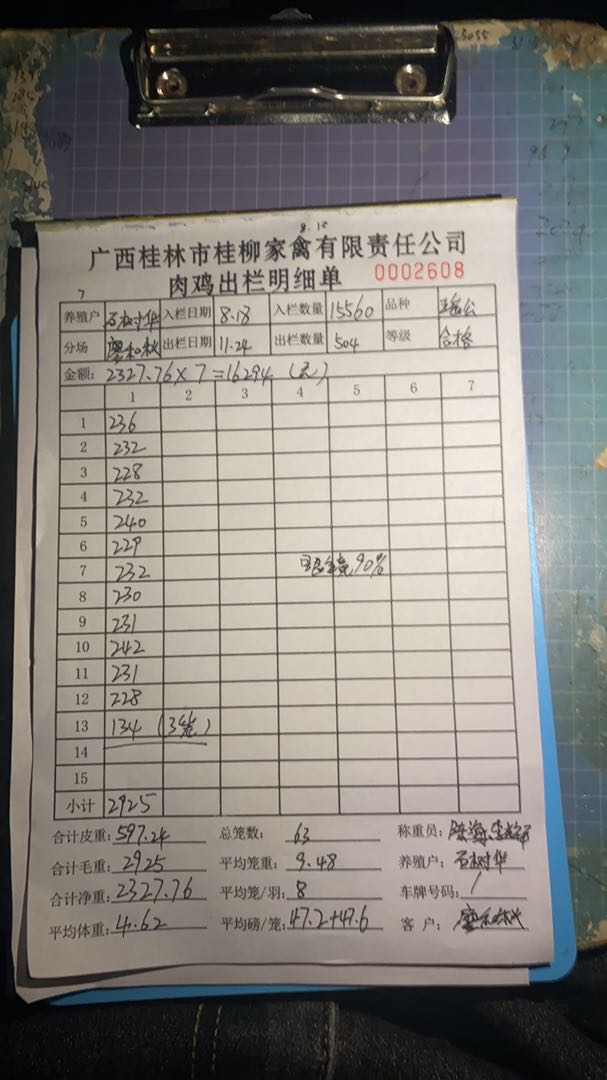 8.18
广西桂林市桂柳家禽有限责任公司
肉鸡出栏明细单 0002608
7
养殖户 石树华 入栏日期 8.18 入栏数量 15560 品种
分场 廖和秋 出栏日期 11.24 出栏数量 504 等级 合格
金额: 2327.76×7=16294(元)
1 2 3 4 5 6 7
1 236
2 232
3 228
4 232
5 240
6 229
7 232 90%
8 230
9 231
10 242
11 231
12 228
13 134 (3笼)
14
15
小计 2925
合计皮重: 597.24 总笼数: 63 称重员:
合计毛重: 2925 平均笼重: 9.48 养殖户: 石树华
合计净重: 2327.76 平均笼/羽: 8 车牌号码: /
平均体重: 4.62 平均磅/笼: 47.2+47.6 客户: 廖和秋